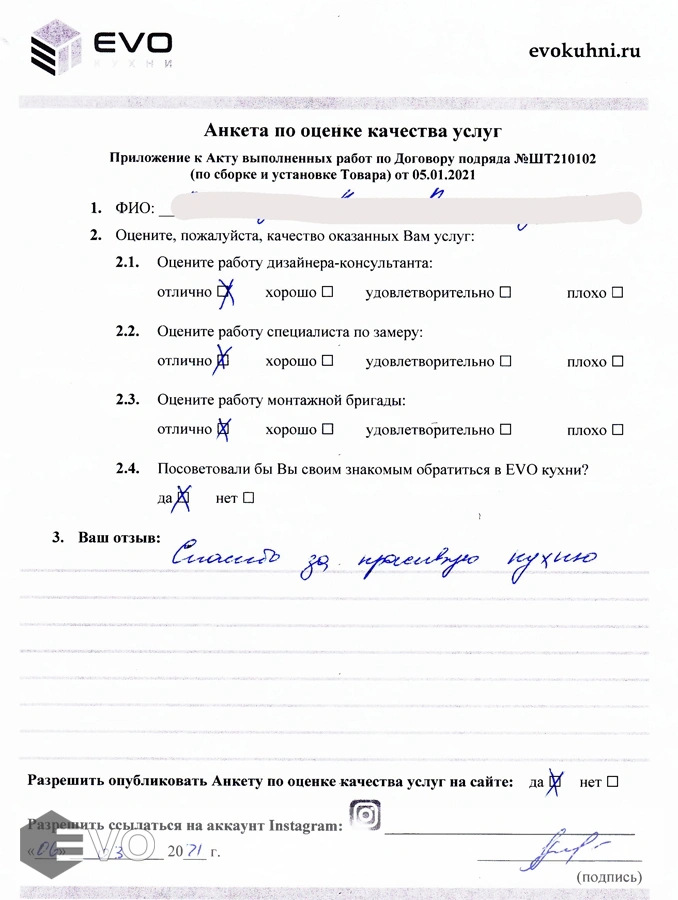 EVO
КУХНИ
evokuhni.ru
Анкета по оценке качества услуг
Приложение к Акту выполненных работ по Договору подряда №ШТ210102
(по сборке и установке Товара) от 05.01.2021
1. ФИО:
2. Оцените, пожалуйста, качество оказанных Вам услуг:
2.1. Оцените работу дизайнера-консультанта:
отлично ☒ хорошо ☐ удовлетворительно ☐ плохо ☐
2.2. Оцените работу специалиста по замеру:
отлично ☒ хорошо ☐ удовлетворительно ☐ плохо ☐
2.3. Оцените работу монтажной бригады:
отлично ☒ хорошо ☐ удовлетворительно ☐ плохо ☐
2.4. Посоветовали бы Вы своим знакомым обратиться в EVO кухни?
да ☒ нет ☐
3. Ваш отзыв:
Спасибо за красивую кухню
Разрешить опубликовать Анкету по оценке качества услуг на сайте: да ☒ нет ☐
Разрешить ссылаться на аккаунт Instagram:
«06» 3 2021 г.
EVO
(подпись)